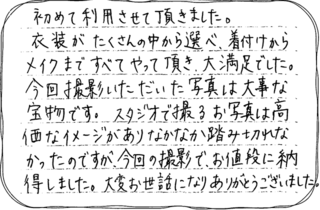 初めて利用させて頂きました。
衣装がたくさんの中から選べ、着付けから
メイクまですべてやって頂き、大満足でした。
今回撮影いただいた写真は大事な
宝物です。スタジオで撮るお写真は高
価なイメージがありなかなか踏み切れな
かったのですが、今回の撮影で、お値段に納
得しました。大変お世話になりありがとうございました。